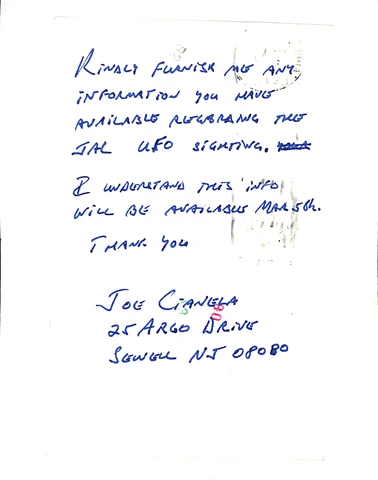 KINDLY FURNISH ME ANY
INFORMATION YOU HAVE
AVAILABLE REGARDING THE
JAL UFO SIGHTING.
I UNDERSTAND THIS INFO
WILL BE AVAILABLE MAR 5th.
THANK YOU
JOE CIANELA
25 ARGO DRIVE
SEWELL NJ 08080